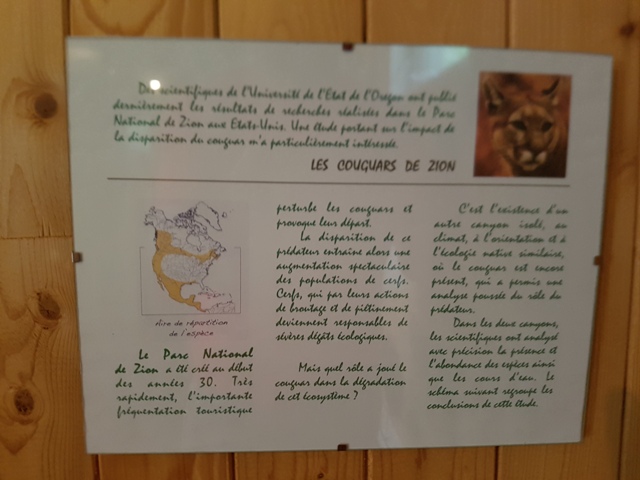 Des scientifiques de l'Université de l'Etat de l'Oregon ont publié
dernièrement les résultats de recherches réalisées dans le Parc
National de Zion aux Etats-Unis. Une étude portant sur l'impact de
la disparition du couguar m'a particulièrement intéressée.
LES COUGUARS DE ZION
Aire de répartition
de l'espèce
Le Parc National
de Zion a été créé au début
des années 30. Très
rapidement, l'importante
fréquentation touristique
perturbe les couguars et
provoque leur départ.
La disparition de ce
prédateur entraîne alors une
augmentation spectaculaire
des populations de cerfs.
Cerfs, qui par leurs actions
de broutage et de piétinement
deviennent responsables de
sévères dégâts écologiques.
Mais quel rôle a joué le
couguar dans la dégradation
de cet écosystème ?
C'est l'existence d'un
autre canyon isolé, au
climat, à l'orientation et à
l'écologie native similaire,
où le couguar est encore
présent, qui a permis une
analyse poussée du rôle du
prédateur.
Dans les deux canyons,
les scientifiques ont analysé
avec précision la présence et
l'abondance des espèces ainsi
que les cours d'eau. Le
schéma suivant regroupe les
conclusions de cette étude.